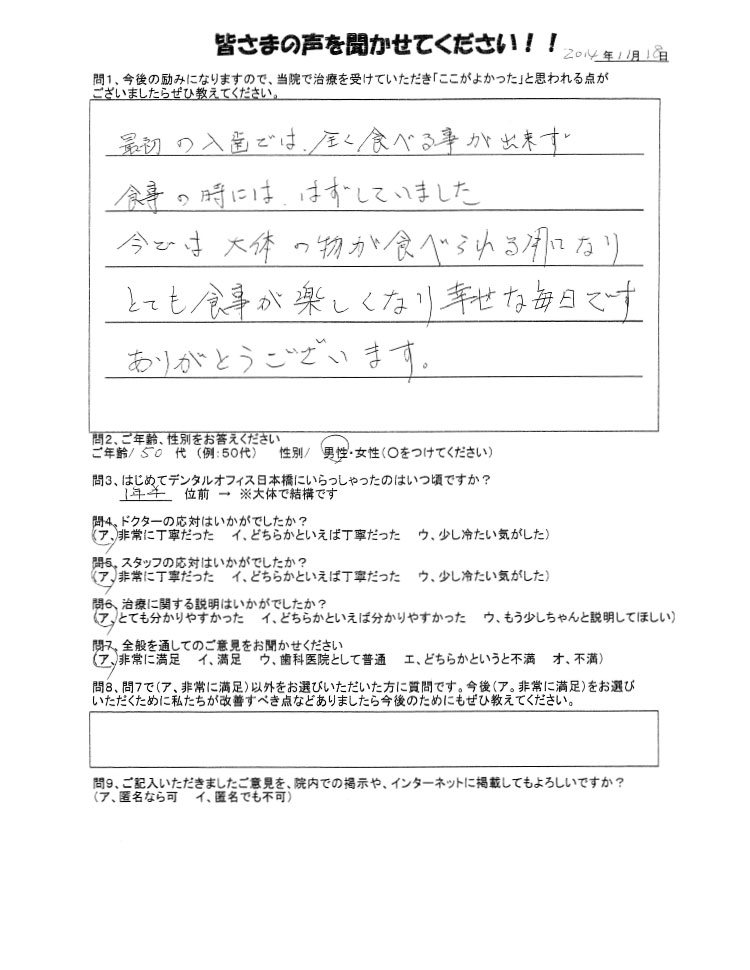 皆さまの声を聞かせてください！！
2014年11月18日
問1、今後の励みになりますので、当院で治療を受けていただき「ここがよかった」と思われる点が
ございましたらぜひ教えてください。
最初の入歯では、全く食べる事が出来ず
食事の時には、はずしていました
今では大体の物が食べられる様になり
とても食事が楽しくなり幸せな毎日です
ありがとうございます。
問2、ご年齢、性別をお答えください
ご年齢/ 50 代 （例：50代） 性別/ 男性・女性（〇をつけてください）
問3、はじめてデンタルオフィス日本橋にいらっしゃったのはいつ頃ですか？
1年半 位前 → ※大体で結構です
問4、ドクターの応対はいかがでしたか？
（ア、非常に丁寧だった イ、どちらかといえば丁寧だった ウ、少し冷たい気がした）
問5、スタッフの応対はいかがでしたか？
（ア、非常に丁寧だった イ、どちらかといえば丁寧だった ウ、少し冷たい気がした）
問6、治療に関する説明はいかがでしたか？
（ア、とても分かりやすかった イ、どちらかといえば分かりやすかった ウ、もう少しちゃんと説明してほしい）
問7、全般を通してのご意見をお聞かせください
（ア、非常に満足 イ、満足 ウ、歯科医院として普通 エ、どちらかというと不満 オ、不満）
問8、問7で（ア、非常に満足）以外をお選びいただいた方に質問です。今後（ア。非常に満足）をお選び
いただくために私たちが改善すべき点などありましたら今後のためにもぜひ教えてください。
問9、ご記入いただきましたご意見を、院内での掲示や、インターネットに掲載してもよろしいですか？
（ア、匿名なら可 イ、匿名でも不可）